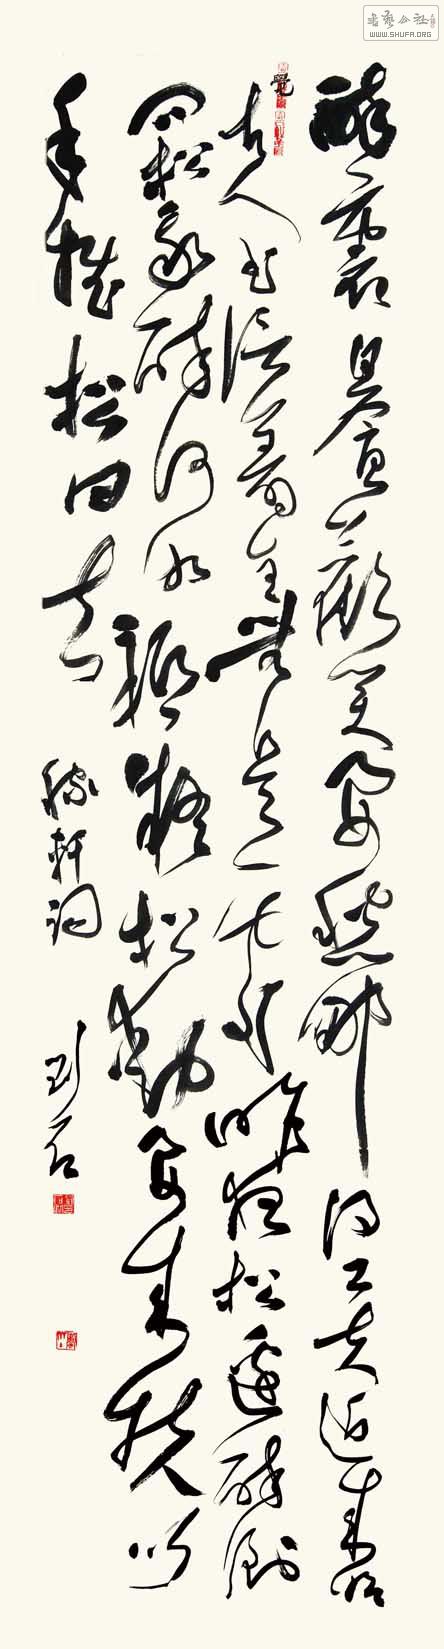 書藝公社
WWW.SHUFA.ORG
醉裏且貪歡笑要愁那得工夫近來始
覺
古人書信著全無是處昨夜松邊醉倒
問松我醉何如祇疑松動要來扶以
手推松曰去
稼軒詞
劉石